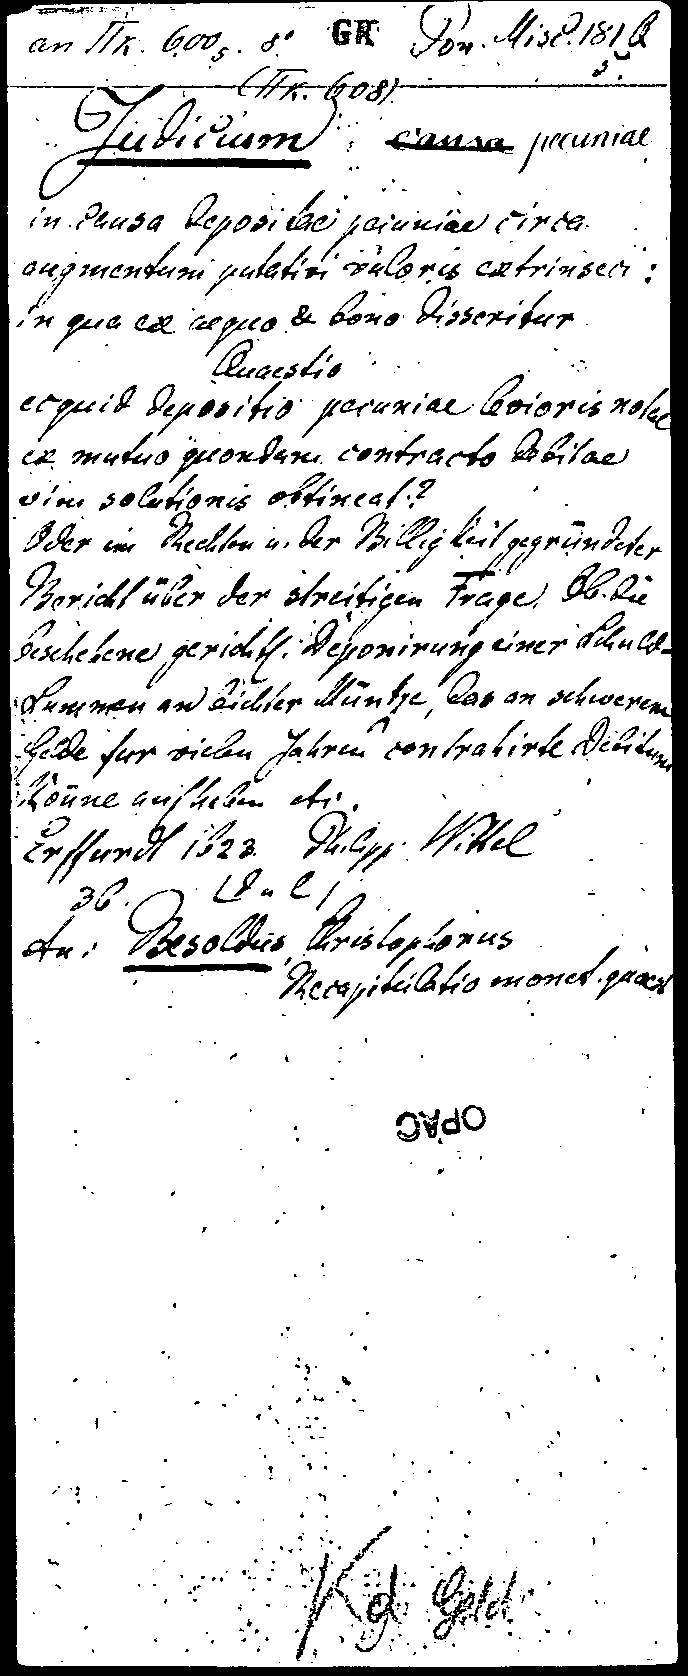 an Πk. 600, 8° GK Pon. Misc. 181 Q
(Πk. 608)
Judicium causa pecuniae
in causa depositae pecuniae circa
augmentum putativi valoris extrinseci:
in qua ex aequo & bono disseritur
Quaestio
ecquid depositio pecuniae levioris notae
ex mutuo quondam contracto debitae
vim solutionis obtineat?
Oder im Rechten u. der Billigkeit gegründeter
Bericht über der streitigen Frage, Ob die
beschehene gerichtl. Deponirung einer Schuld-
Summen an leichter Müntze, das an schwerem
Gelde fur vielen Jahren contrahirte Debitum
könne aufheben etc.
Erffurdt 1623. Philipp Wittel
36.
An: Besoldus, Christophorus
Recapitulatio monet. quaest
OPAC
Kd Geld